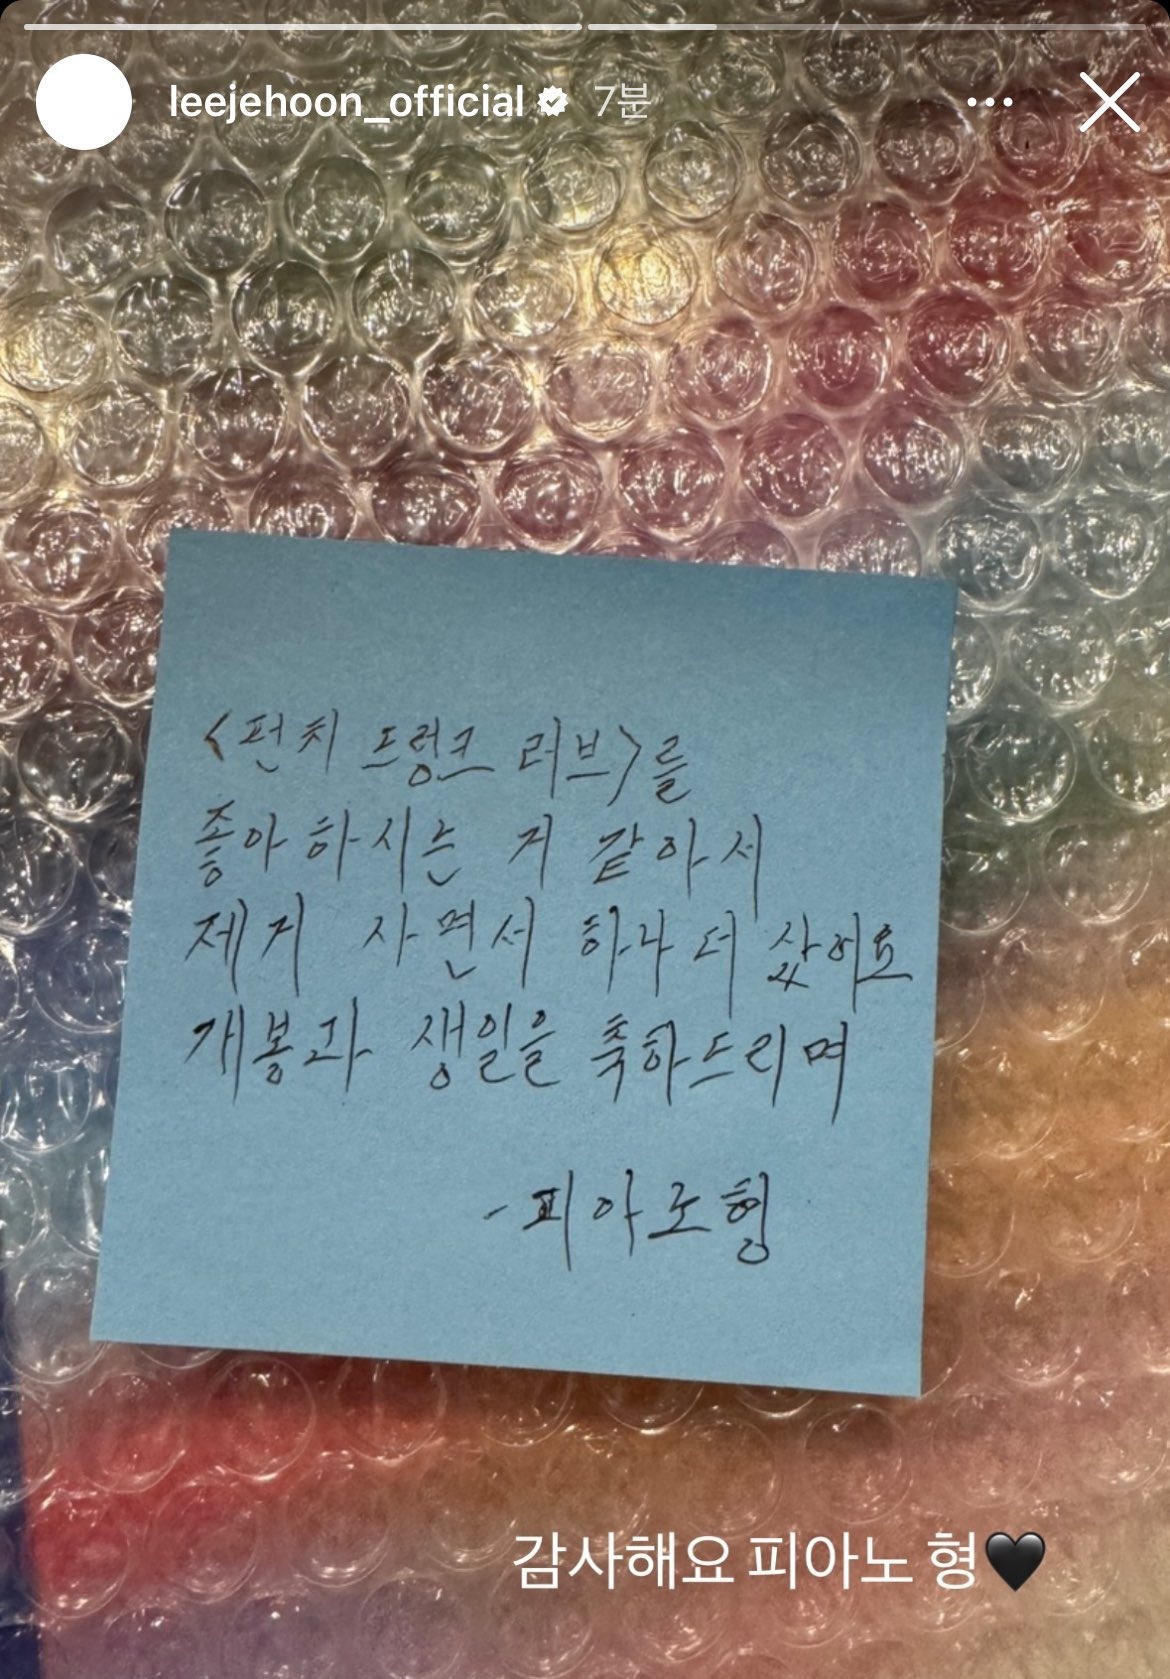 leejehoon_official 7분
<펀치 드렁크 러브>를
좋아하시는 거 같아서
제거 사면서 하나 더 샀어요
개봉과 생일을 축하드리며
-피아노형
감사해요 피아노 형🖤